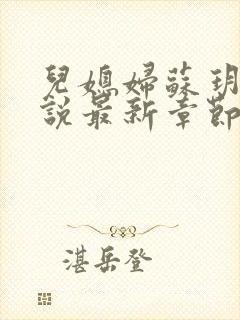 兒媳婦蘇玥
說最新章節
湛岳登